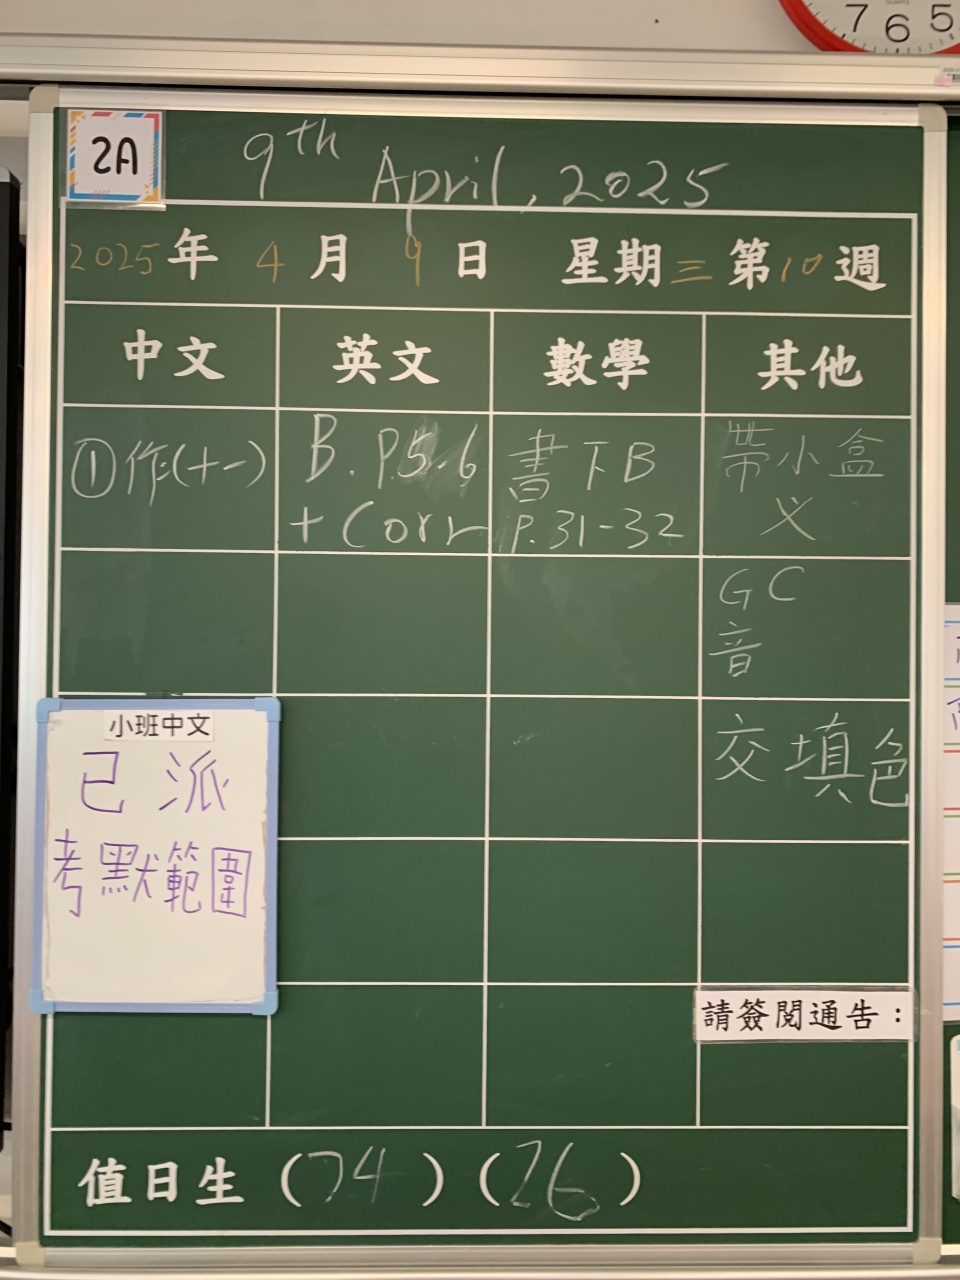 7 6 5
2A
9th April, 2025
2025年 4月 9日 星期三 第10週
中文 英文 數學 其他
①作(十一)
B. P.5-6
+ Corr
書下B
P.31-32
帶小盒
义
GC
音
交填色
小班中文
已派
考默範圍
請簽閱通告：
值日生 ( 74 ) ( 26 )